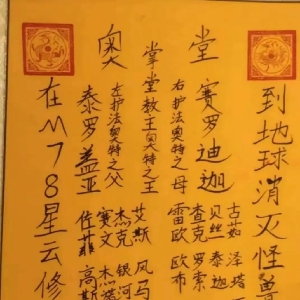 奥堂
在M78星云修
泰罗盖亚
左护法奥特之父
掌堂教主奥特之王
右护法奥特之母
赛罗迪迦
到地球消灭怪兽
佐菲 高斯
赛文
杰克 银河
艾斯 风马
雷欧 欧布
查克 罗索
贝丝 泰迦
古茹 泽塔